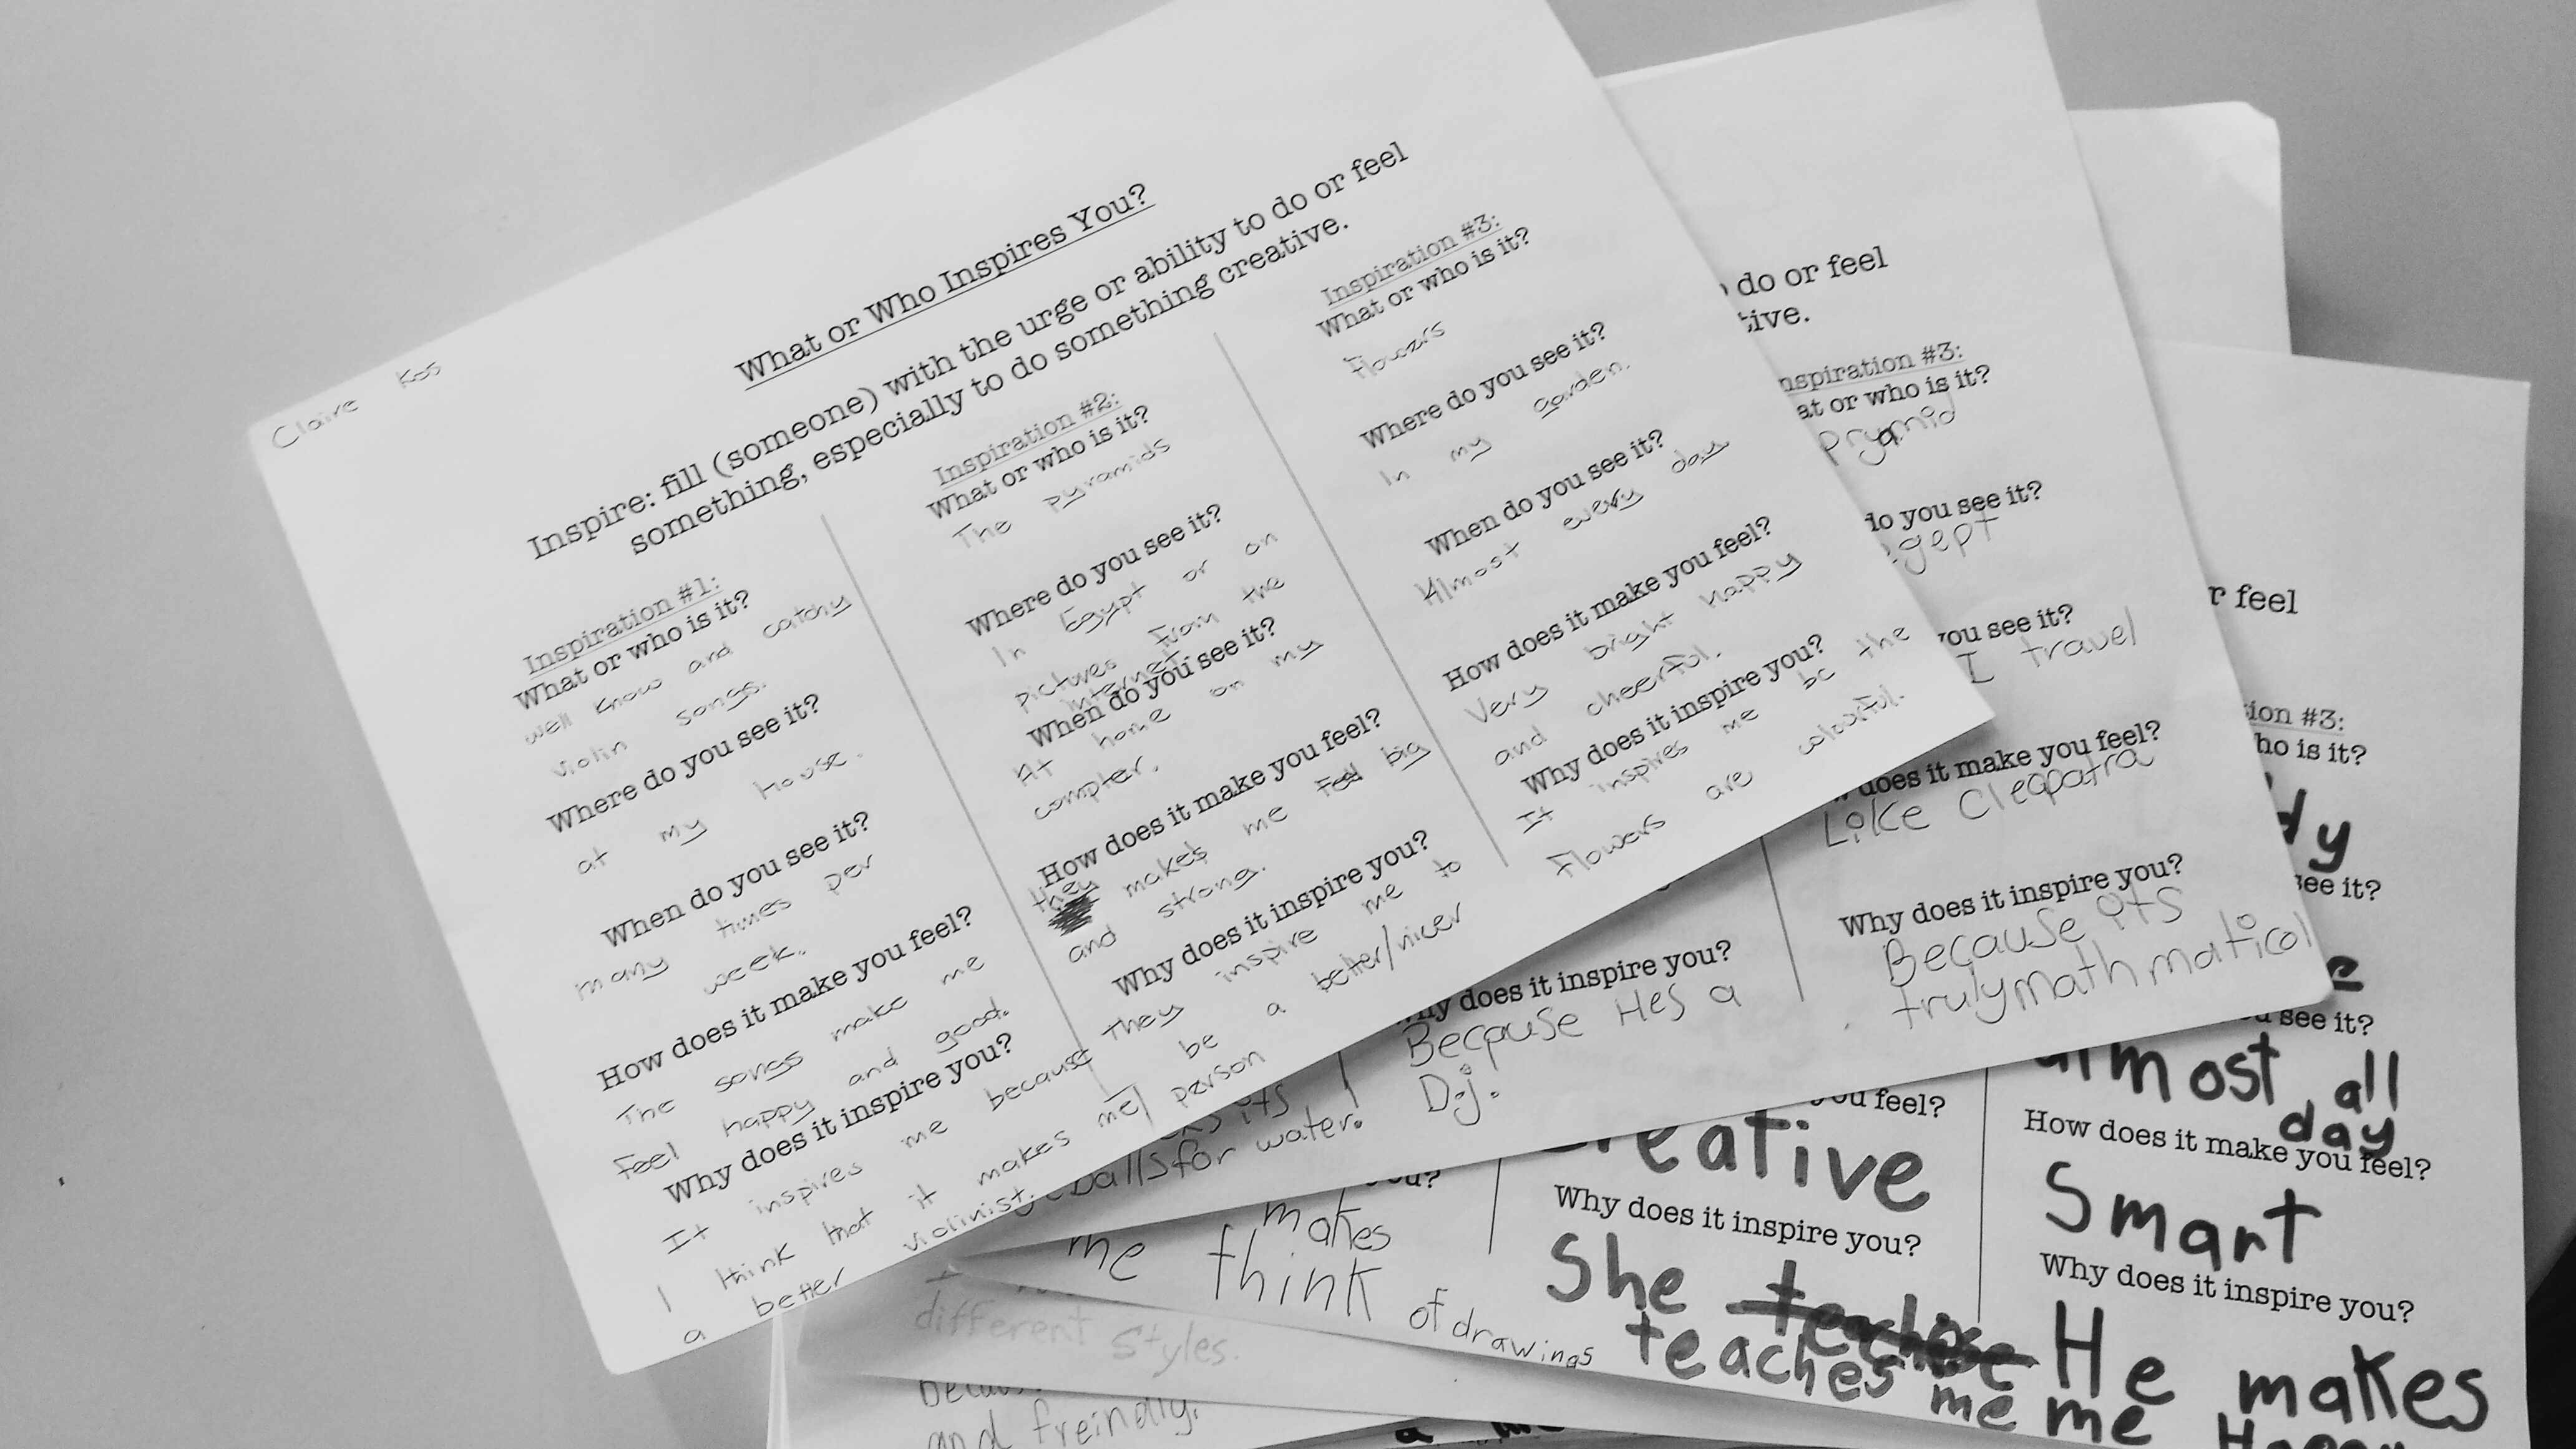 Claire Kos
What or Who Inspires You?
Inspire: fill (someone) with the urge or ability to do or feel
something, especially to do something creative.
Inspiration #1:
What or who is it?
well know and catchy
violin songs.
Where do you see it?
at my house.
When do you see it?
many times per
week.
How does it make you feel?
The songs make me
feel happy and good.
Why does it inspire you?
It inspires me because
I think that it makes me
a better violinist.
Inspiration #2:
What or who is it?
The pyramids
Where do you see it?
In Egypt or on
pictures from the
internet.
When do you see it?
At home on my
compter.
How does it make you feel?
they makes me feel big
and strong.
Why does it inspire you?
They inspire me to
be a better/nicer
person
Inspiration #3:
What or who is it?
Flowers
Where do you see it?
In my garden.
When do you see it?
Almost every day
How does it make you feel?
Very bright happy
and cheerful.
Why does it inspire you?
It inspires me bc the
Flowers are colourful.
do or feel
tive.
nspiration #3:
at or who is it?
Prymid
do you see it?
gept
you see it?
I travel
does it make you feel?
Like Cleopatra
Why does it inspire you?
Because its
truly mathmatical
hy does it inspire you?
Because Hes a
D.j.
its
balls for water.
r feel
ion #3:
ho is it?
dy
see it?
e
see it?
almost all
day
How does it make you feel?
Smart
Why does it inspire you?
He makes
me
you feel?
creative
Why does it inspire you?
She teaches
me
makes
me think of drawings
different styles.
and freindly.